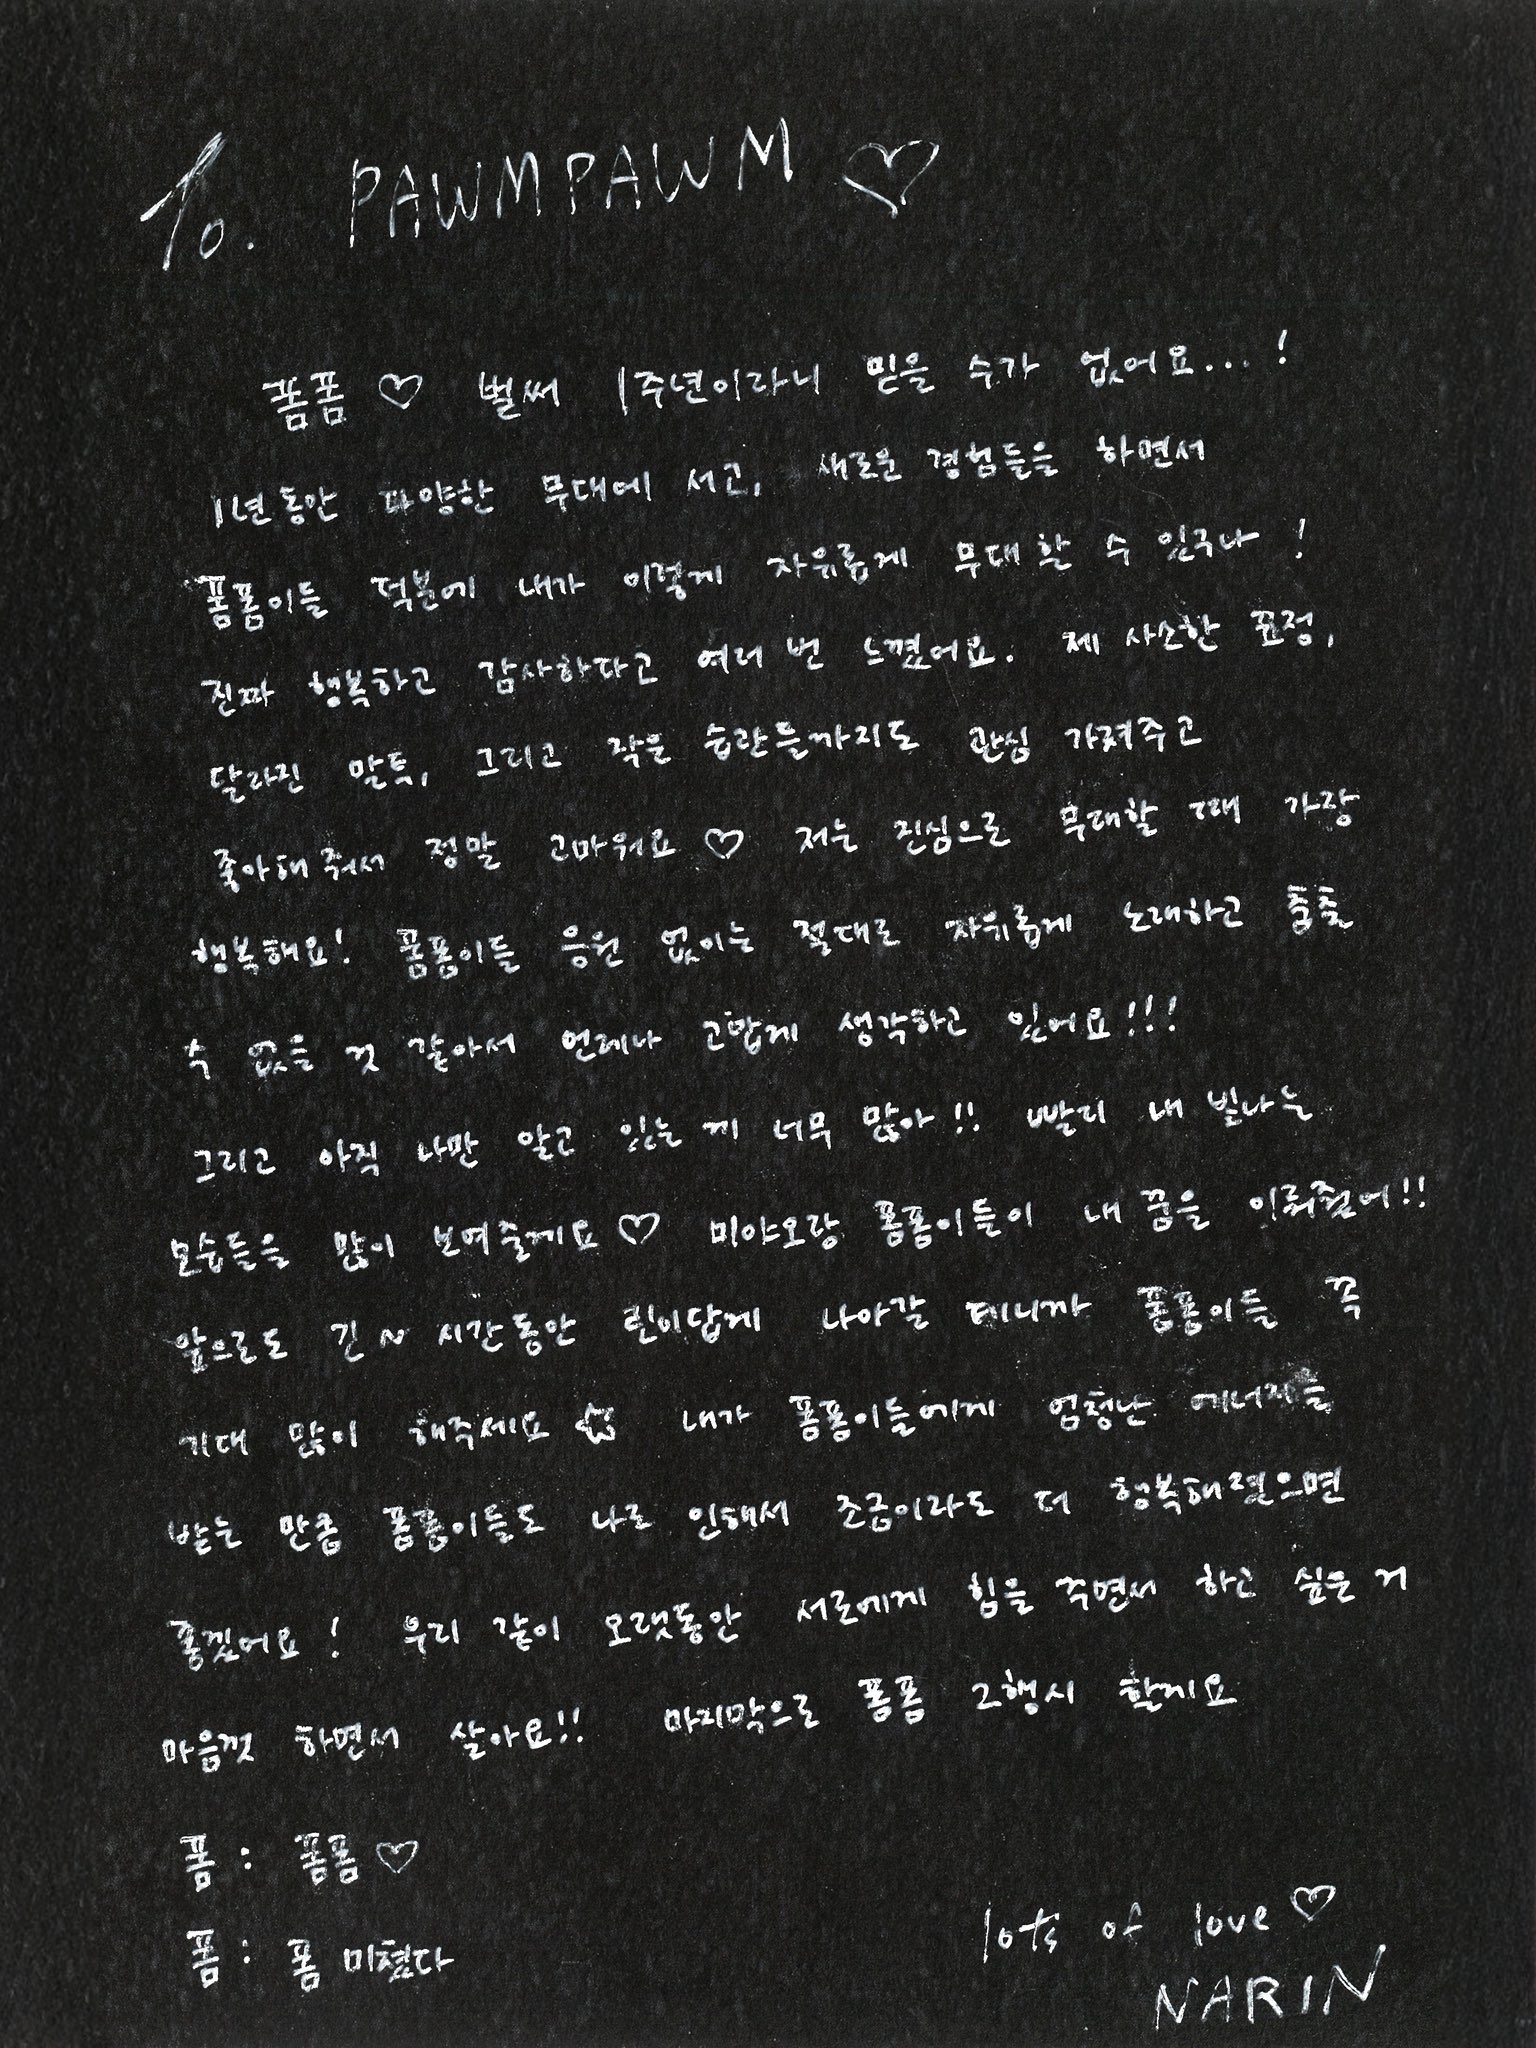 To. PAWMPAWM ♡
폼폼 ♡ 벌써 1주년이라니 믿을 수가 없어요...!
1년동안 다양한 무대에 서고, 새로운 경험들을 하면서
폼폼이들 덕분에 내가 이렇게 자유롭게 무대할 수 있구나!
진짜 행복하고 감사하다고 여러번 느꼈어요. 제 사소한 표정,
달라진 말투, 그리고 작은 습관들까지도 관심 가져주고
좋아해줘서 정말 고마워요 ♡ 저는 진심으로 무대할 때 가장
행복해요! 폼폼이들 응원 없이는 절대로 자유롭게 노래하고 춤출
수 없을 것 같아서 언제나 고맙게 생각하고 있어요!!!
그리고 아직 나만 알고 있는게 너무 많아!! 빨리 내 빛나는
모습들을 많이 보여줄게요 ♡ 미야오랑 폼폼이들이 내 꿈을 이뤄줬어!!
앞으로도 긴~ 시간동안 린이답게 나아갈 테니까 폼폼이들 꼭
기대 많이 해주세요 ☆ 내가 폼폼이들에게 엄청난 에너지를
받는 만큼 폼폼이들도 나로 인해서 조금이라도 더 행복해졌으면
좋겠어요! 우리 같이 오랫동안 서로에게 힘을 주면서 하고 싶은거
마음껏 하면서 살아요!! 마지막으로 폼폼 2행시 할게요
폼: 폼폼 ♡
폼: 폼 미쳤다
lots of love ♡
NARIN